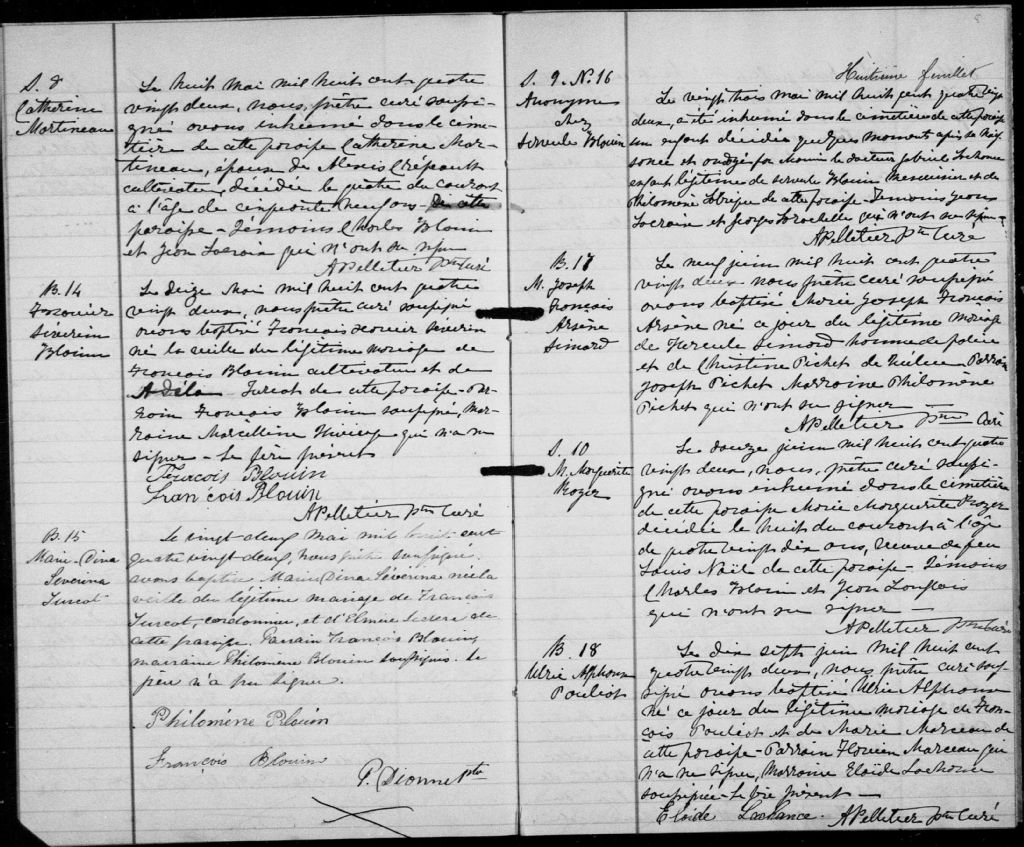 S. 8
Catherine
Martineau
Le huit mai mil huit cent quatre
vingt deux, nous, prêtre curé soussi-
gné avons inhumé dans le cime-
tière de cette paroisse Catherine Mar-
tineau, épouse de Alexis Crépeault
cultivateur, décédée le quatre du courant
à l'âge de cinquante neuf ans - De cette
paroisse - Témoins Charles Blouin
et Jean Lacroix qui n'ont su signer
A Pelletier Ptre Curé
B. 14
François
Xavier
Séverin
Blouin
Le seize Mai mil huit cent quatre
vingt deux, nous prêtre curé soussigné
avons baptisé François Xavier Séverin
né la veille du légitime mariage de
François Blouin cultivateur et de
Adéla Turcot de cette paroisse - Par-
rain François Blouin soussigné, Mar-
raine Marcelline qui n'a su
signer - Le père présent
François Blouin
François Blouin
A Pelletier ptre Curé
B. 15
Marie-Dina
Séverina
Turcot
Le vingt deux Mai mil huit cent
quatre vingt deux, nous prêtre soussigné
avons baptisé Marie Dina Séverina née la
veille du légitime mariage de François
Turcot, cordonnier, et d'Elmire Leclerc de
cette paroisse. Parrain François Blouin,
marraine Philomène Blouin soussignés. Le
père n'a pu signer.
Philomène Blouin
François Blouin
P. Dionne ptre
Huitième feuillet
S. 9. N. 16
Anonyme
chez
Servule Blouin
Le vingt trois mai mil huit cent quatre vingt
deux, a été inhumé dans le cimetière de cette paroisse
un enfant décédé quelques moments après sa nais-
sance et ondoyé par Monsieur le docteur Gabriel Lachance
enfant légitime de Servule Blouin Menuisier et de
Philomène de cette paroisse - Témoins Jean
Lacroix et Georges qui n'ont su signer -
A Pelletier Ptre Curé
B. 17
M. Joseph
François
Arsène
Simard
Le neuf juin mil huit cent quatre
vingt deux nous prêtre curé soussigné
avons baptisé Marie Joseph François
Arsène né ce jour du légitime mariage
de Hercule Simard homme de police
et de Christine Pichet de Québec Parrain
Joseph Pichet Marraine Philomène
Pichet qui n'ont su signer
A Pelletier Ptre Curé
S. 10
M. Marguerite
Royer
Le douze juin mil huit cent quatre
vingt deux, nous, prêtre curé soussi-
gné avons inhumé dans le cimetière
de cette paroisse Marie Marguerite Royer
décédée le huit du courant à l'âge
de quatre vingt dix ans, Veuve de feu
Louis Noël de cette paroisse - Témoins
Charles Blouin et Jean Langlois
qui n'ont su signer -
A Pelletier Ptre Curé
B. 18
Ulric Alphonse
Pouliot
Le dix sept juin mil huit cent
quatre vingt deux, nous prêtre curé sous-
signé avons baptisé Ulric Alphonse
né ce jour du légitime mariage de Fran-
çois Pouliot et de Marie Marceau de
cette paroisse - Parrain Flavien Marceau qui
n'a su signer, Marraine Eloïde Lachance
soussignée - Le père présent -
Eloïde Lachance. A Pelletier Ptre Curé